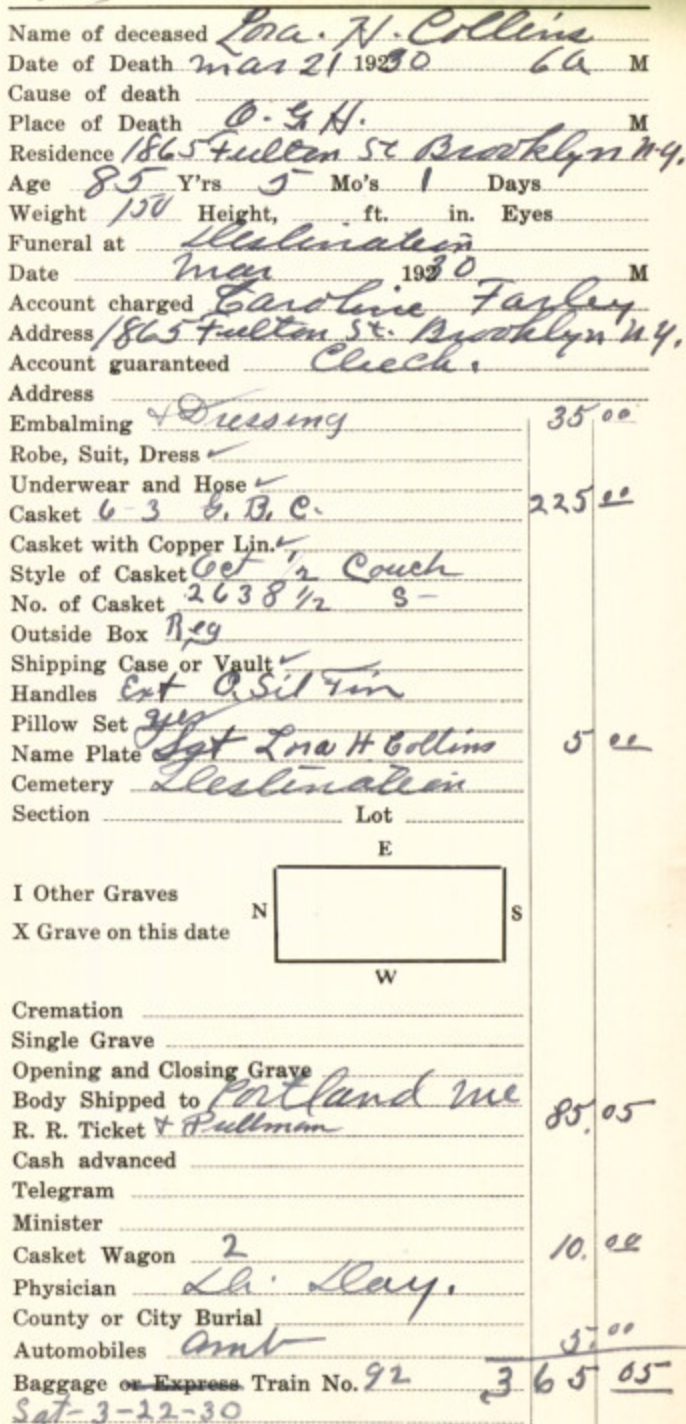 Name of deceased Lora. H. Collins
Date of Death Mar 21 1930 6 a M
Cause of death
Place of Death O. G. H. M
Residence 1865 Fulton St Brooklyn N.Y.
Age 85 Y'rs 5 Mo's 1 Days
Weight 150 Height, ft. in. Eyes
Funeral at Destination
Date Mar 1930 M
Account charged Caroline Farley
Address 1865 Fulton St. Brooklyn N.Y.
Account guaranteed Check.
Address
Embalming + Dressing 35 00
Robe, Suit, Dress ✓
Underwear and Hose ✓
Casket 6-3 G. B. C. 225 00
Casket with Copper Lin. ✓
Style of Casket Oct 1/2 Couch
No. of Casket 2638 1/2 S-
Outside Box Reg
Shipping Case or Vault ✓
Handles Ext O. Sil Fin
Pillow Set yes
Name Plate Sgt Lora H Collins 5 00
Cemetery Destination
Section Lot
E
I Other Graves
N S
X Grave on this date
W
Cremation
Single Grave
Opening and Closing Grave
Body Shipped to Portland Me
R. R. Ticket + Pullman 85.05
Cash advanced
Telegram
Minister
Casket Wagon 2 10.00
Physician Dr. Day.
County or City Burial
Automobiles Amb 5.00
Baggage or Express Train No. 92 365 05
Sat-3-22-30